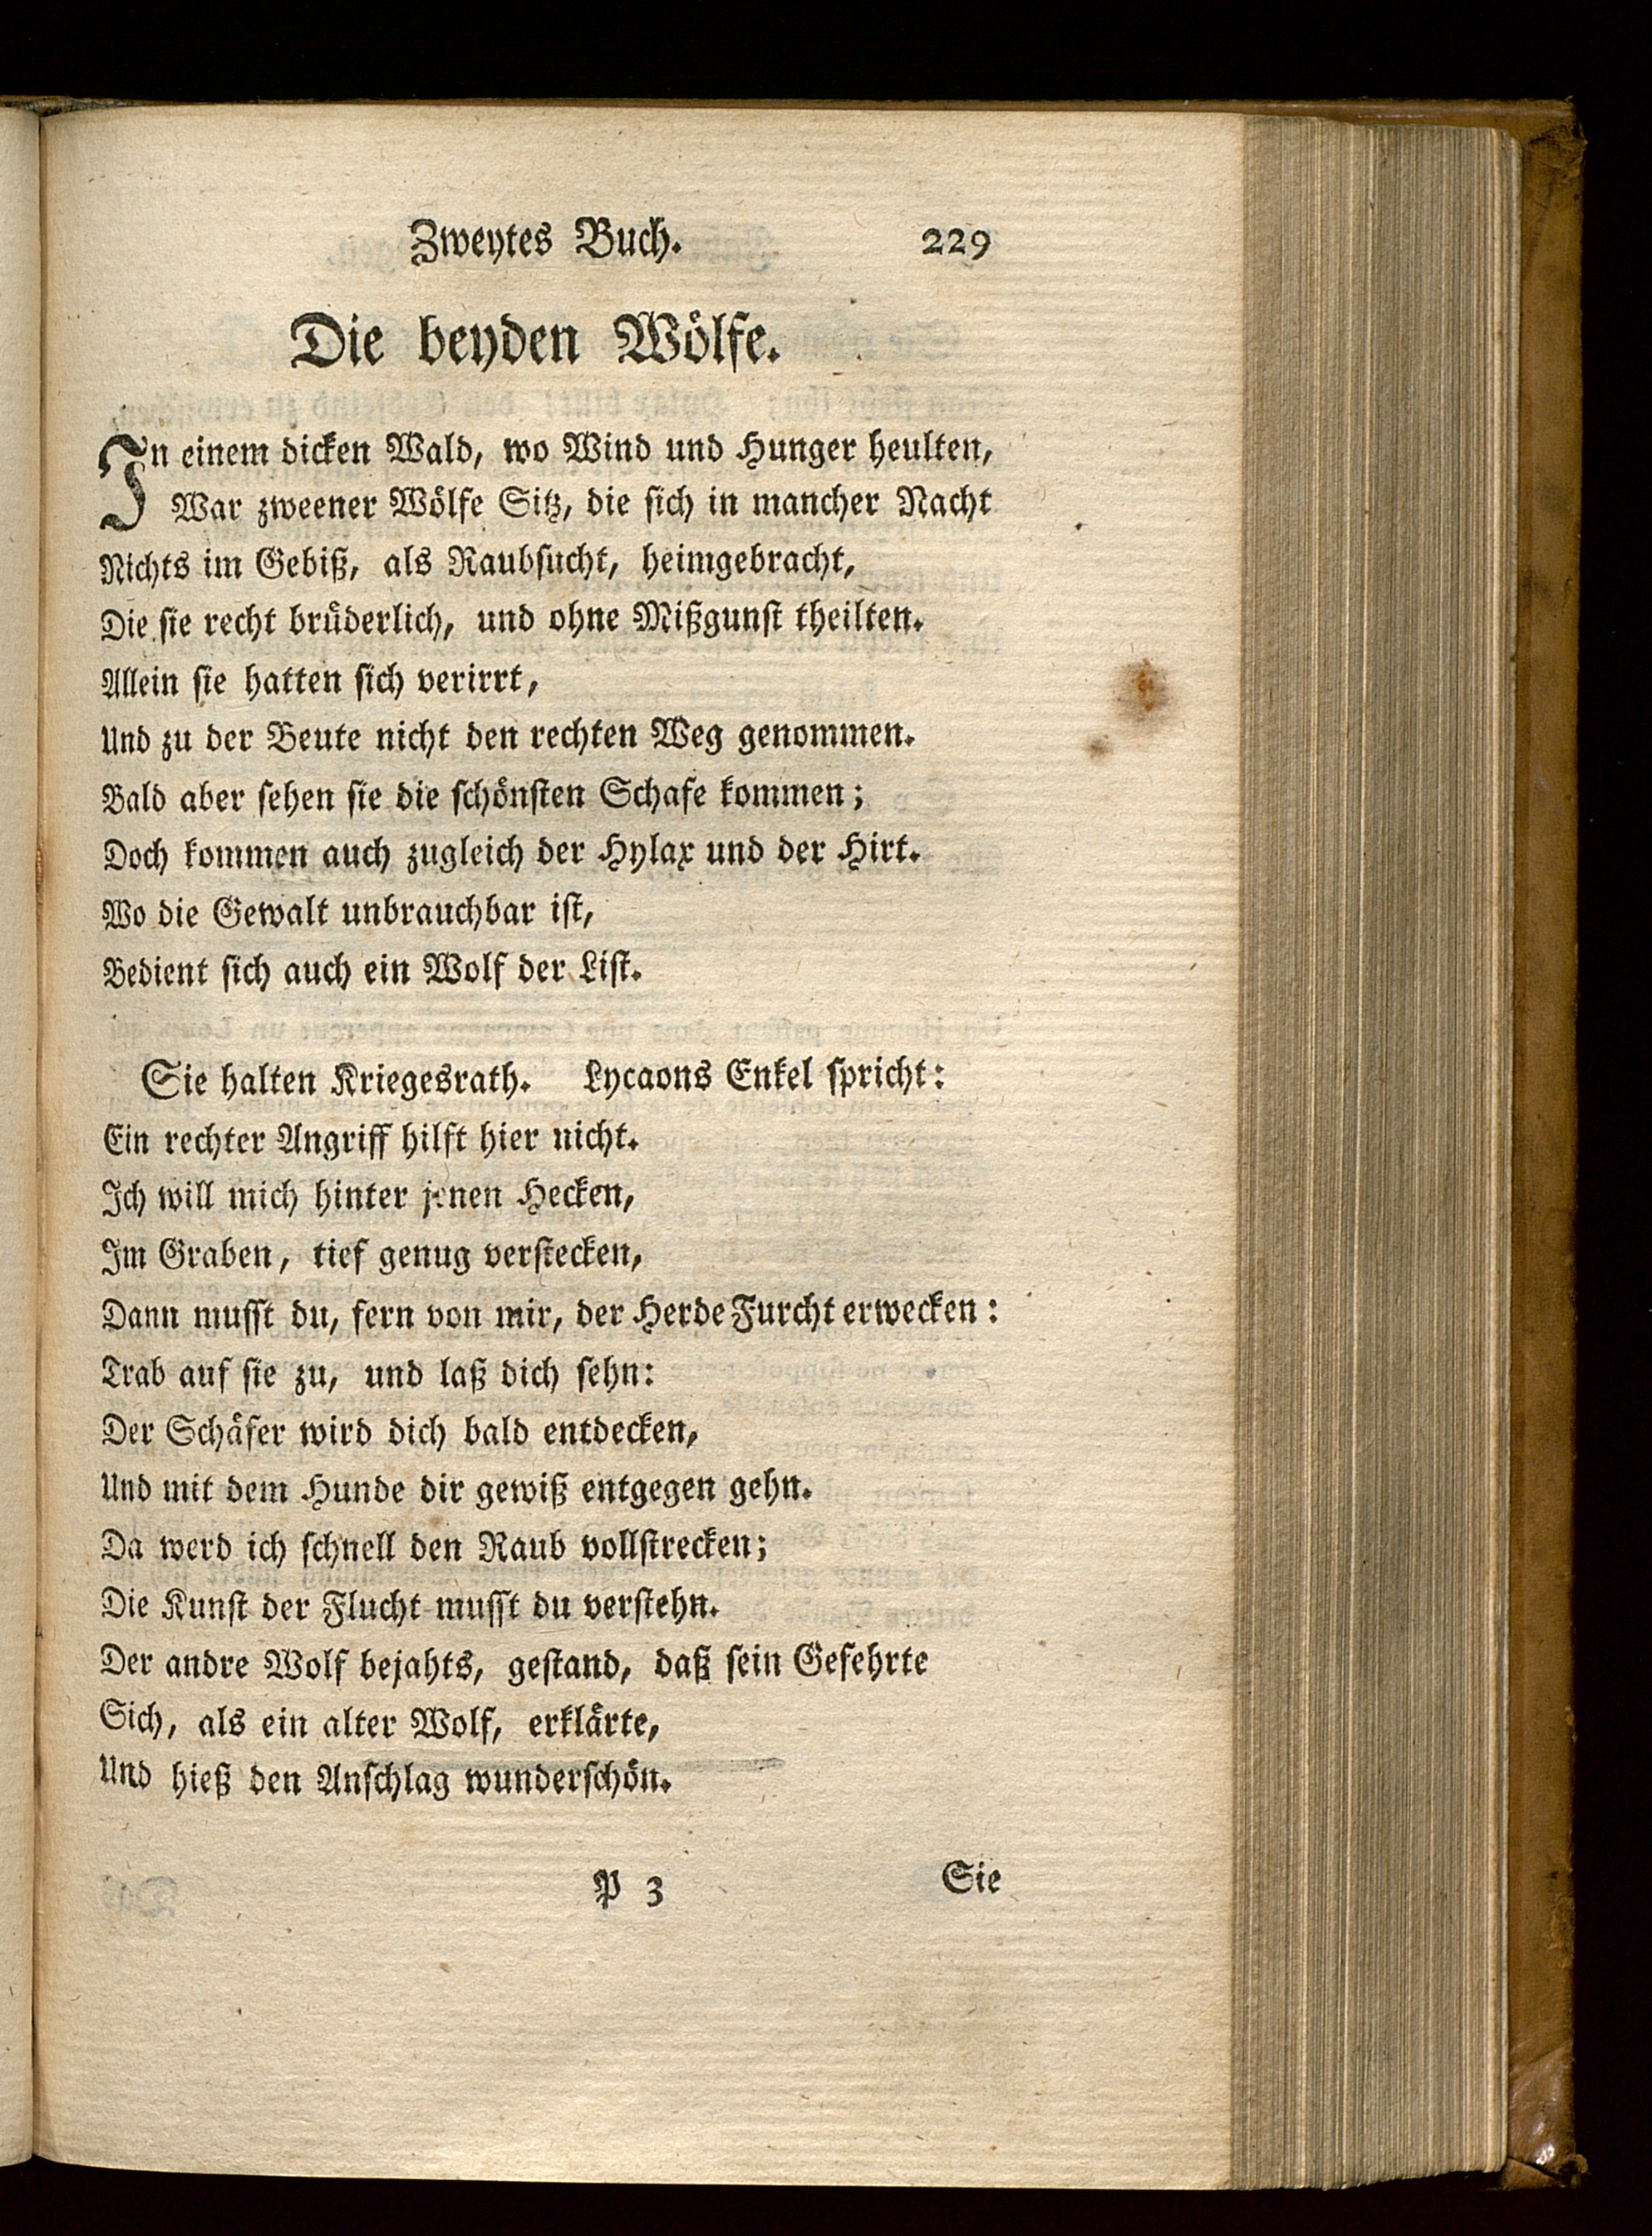 Zweytes Buch. 229
Die beyden Wölfe.
In einem dicken Wald, wo Wind und Hunger heulten,
War zweener Wölfe Sitz, die sich in mancher Nacht
Nichts im Gebiß, als Raubsucht, heimgebracht,
Die sie recht brüderlich, und ohne Mißgunst theilten.
Allein sie hatten sich verirrt,
Und zu der Beute nicht den rechten Weg genommen.
Bald aber sehen sie die schönsten Schafe kommen;
Doch kommen auch zugleich der Hylax und der Hirt.
Wo die Gewalt unbrauchbar ist,
Bedient sich auch ein Wolf der List.
Sie halten Kriegesrath. Lycaons Enkel spricht:
Ein rechter Angriff hilft hier nicht.
Ich will mich hinter jenen Hecken,
Im Graben, tief genug verstecken,
Dann musst du, fern von mir, der Herde Furcht erwecken:
Trab auf sie zu, und laß dich sehn:
Der Schäfer wird dich bald entdecken,
Und mit dem Hunde dir gewiß entgegen gehn.
Da werd ich schnell den Raub vollstrecken;
Die Kunst der Flucht musst du verstehn.
Der andre Wolf bejahts, gestand, daß sein Gefehrte
Sich, als ein alter Wolf, erklärte,
Und hieß den Anschlag wunderschön.
P 3 Sie